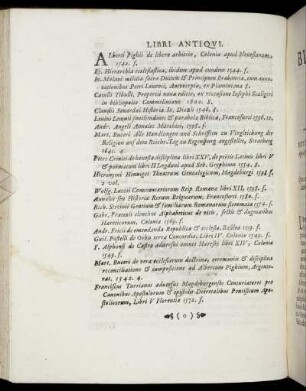 LIBRI ANTIQVI.
Alberti Pighii de libero arbitrio, Coloniæ apud
1542. f.
Ej. Hierarchia ecclesiastica, ibidem apud eundem 1544. f.
Jo. Molani militia sacra Ducum & Principum Brabantiæ, cum annotationibus Petri Louvvii, Antverpiæ, ex Plantiniana 8.
Catulli Tibulli, Propertii nova editio, ex recensione Josephi Scaligeri
in bibliopolio Commeliniano 1600. 8.
Levini Lemnii similitudines & parabolæ Biblicæ, Francofurti 1596. 12.
Andr. Angeli Annales Marchiæ, 1598. f.
Mart. Buceri Alle Handlungen und Schrifften zu Vergleichung der
Religion auf dem Reichs-Tag zu Regenspurg angestellet, Strasburg
1541. 4.
Petri Criniti de honesta disciplina libri XXV, de poetis Latinis libri V
& poëmatum libri II Lugduni apud Seb. Gryphium 1554. 8.
Hieronymi Henninges Theatrum Genealogicum, Magdeburgi 1598. f.
2 vol.
Wolfg. Lazii Commentariorum Reip. Romanæ libri XII. 1598. f.
Annales seu Historiæ Rerum Belgicarum, Francofurti 1580. f.
Rich. Streinii Gentium & familiarum Romanarum stemmata 1554. f.
Gabr. Prateoli elenchus Alphabeticus de vitis, sectis & dogmatibus
Hæreticorum, Coloniæ 1569. f.
Andr. Fricii de emendanda Republica & ecclesia. Basileæ 1559. f.
Guil. Postelli de Orbis terræ Concordia, Libri IV.
F. Alphonsi de Castro adversus omnes Hæreses libri XIV, Coloniæ
1549. f.
Mart. Buceri de vera ecclesiarum doctrina, ceremoniis & disciplina
reconciliatione & compositione ad Albertum Pighium, Argentorat.
1542. 4.
Francisci Turriani adversus Magdeburgenses Centuriatores pro
Canonibus Apostolorum & epistolis Decretalibus Pontificum Apostolicorum, Libri V Florentiæ 1572. f.
( o )